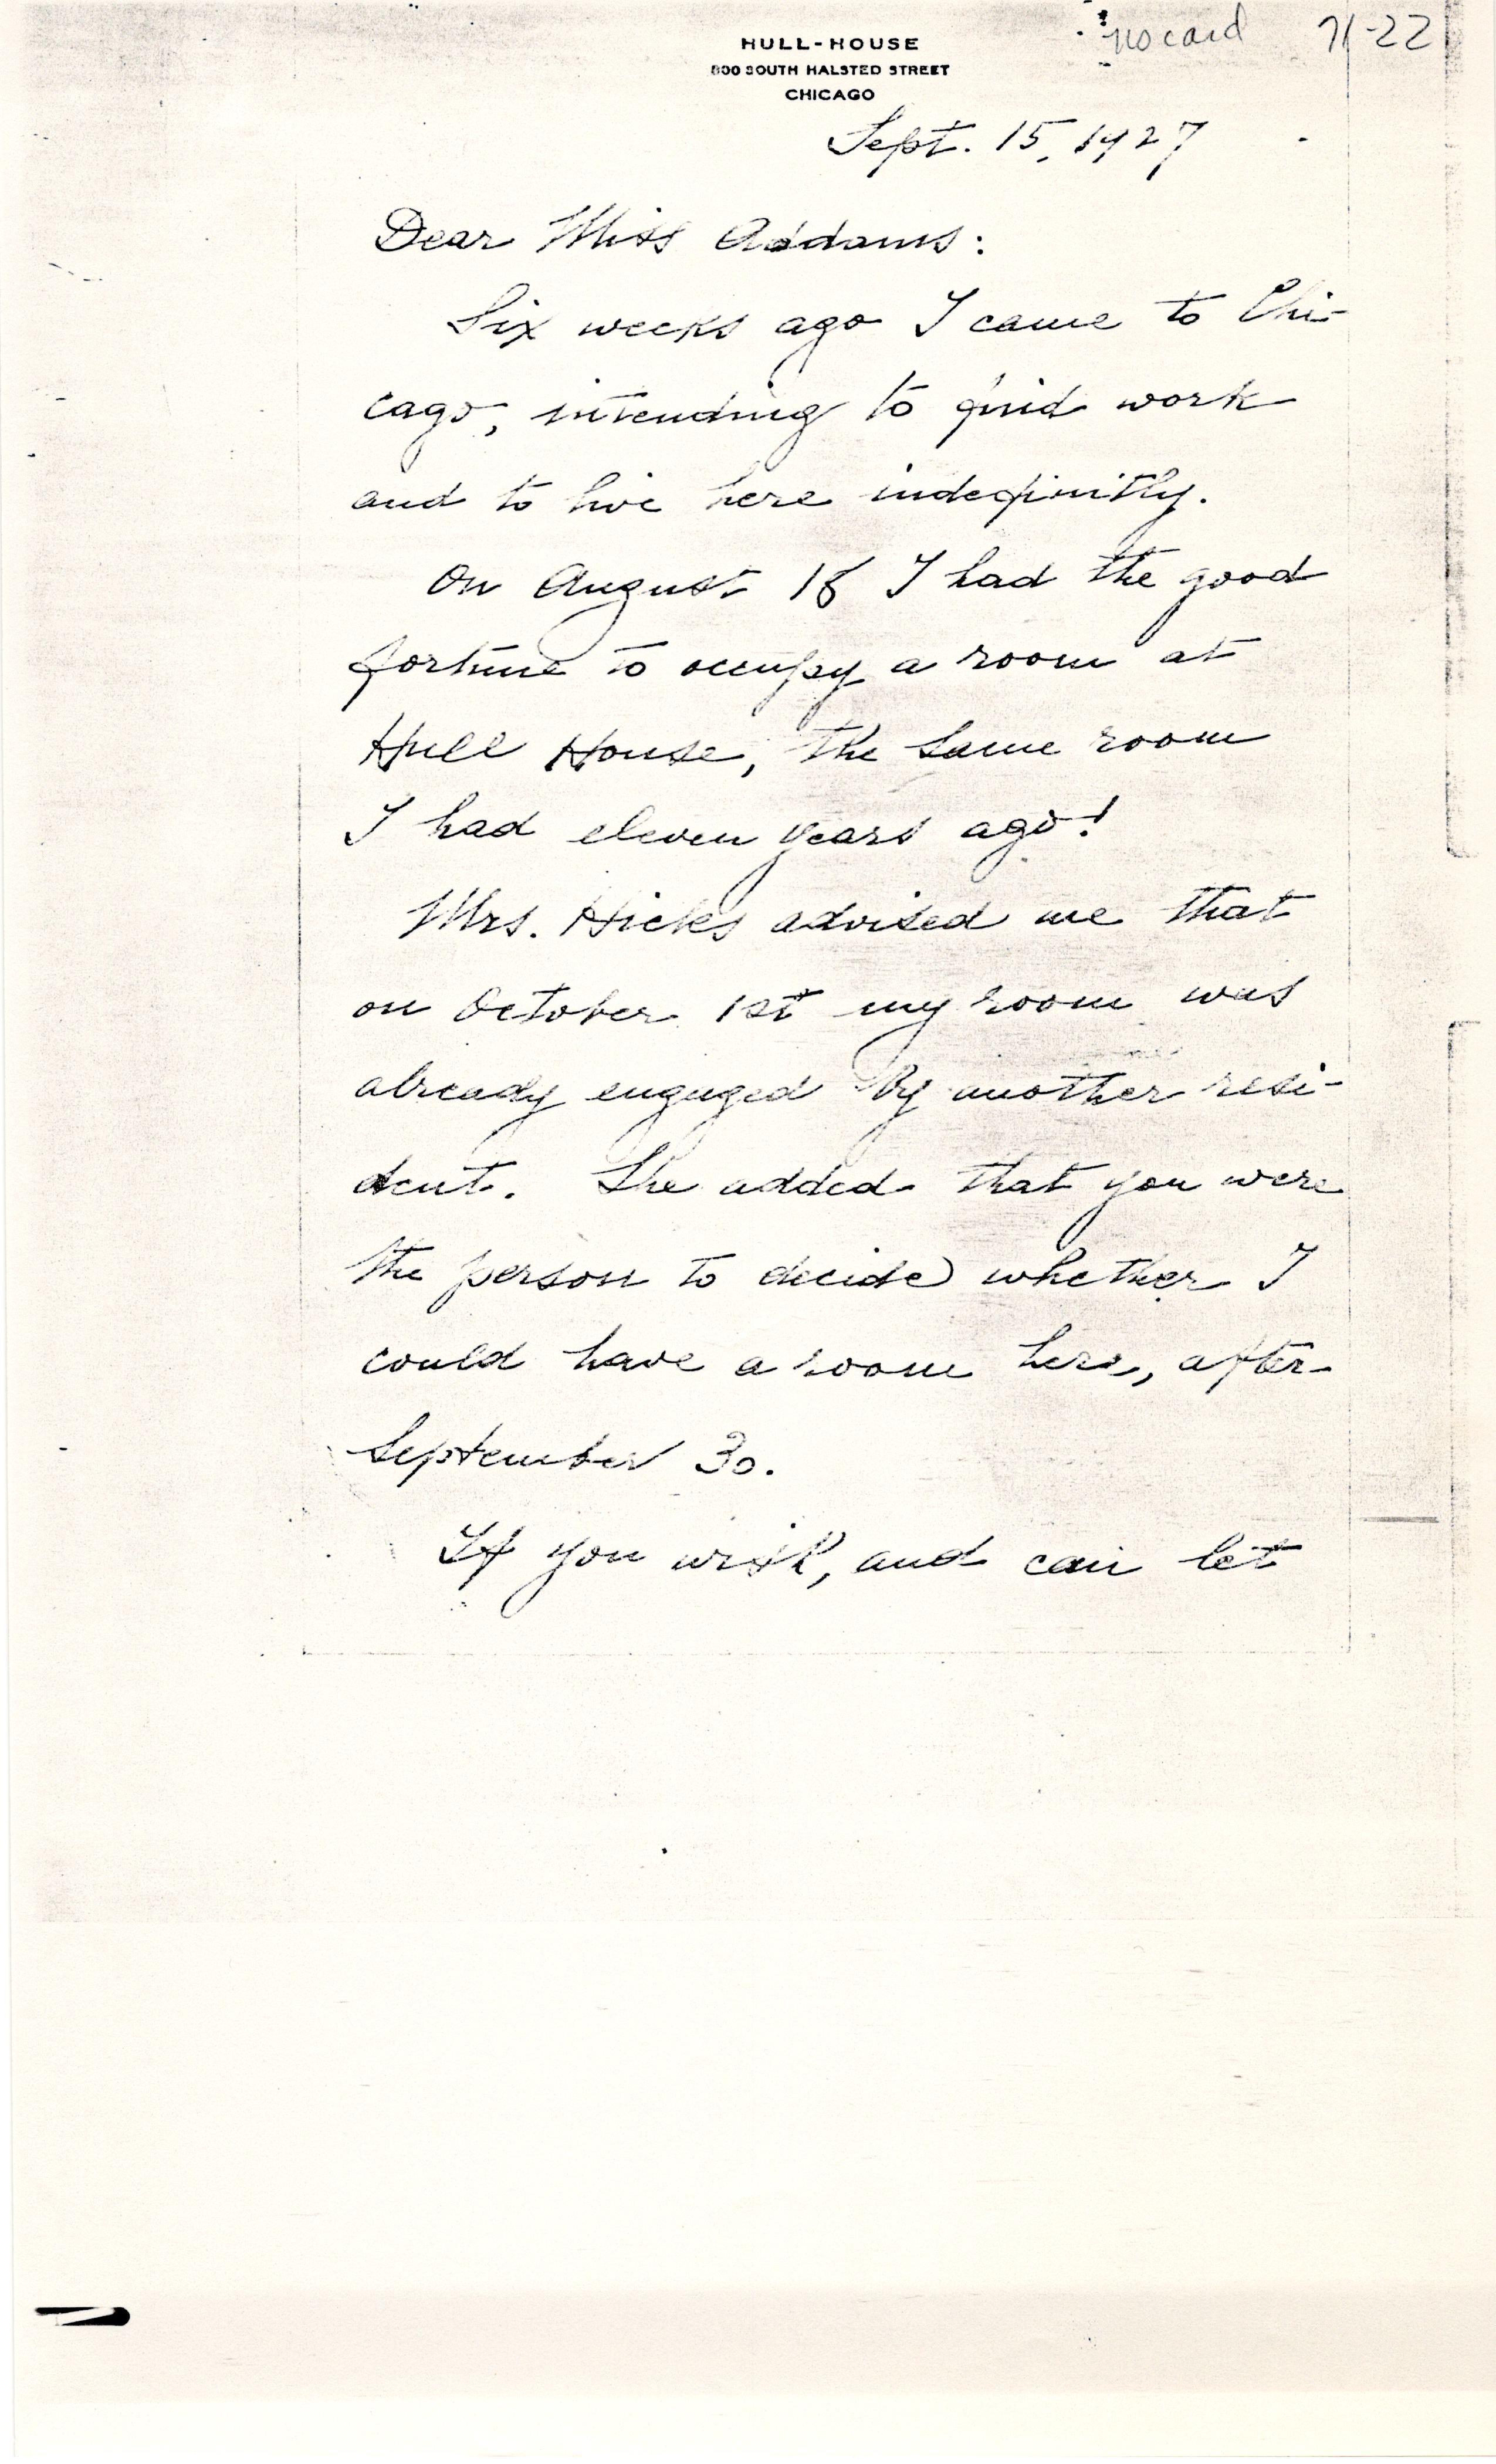 no card 71-22
HULL-HOUSE
800 SOUTH HALSTED STREET
CHICAGO
Sept. 15, 1927
Dear Miss Addams:
Six weeks ago I came to Chi-
cago, intending to find work
and to live here indefinitly.
On August 18 I had the good
fortune to occupy a room at
Hull House, the same room
I had eleven years ago!
Mrs. Hicks advised me that
on October 1st my room was
already engaged by another resi-
dent. She added that you were
the person to decide whether I
could have a room here, after
September 30.
If you wish, and can let